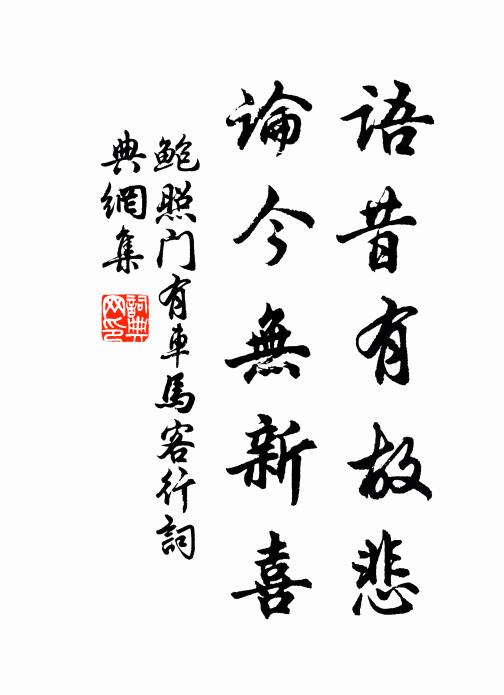 語昔有故悲
論今無新喜
鮑照門有車馬客行詞
典網集
詞典网印